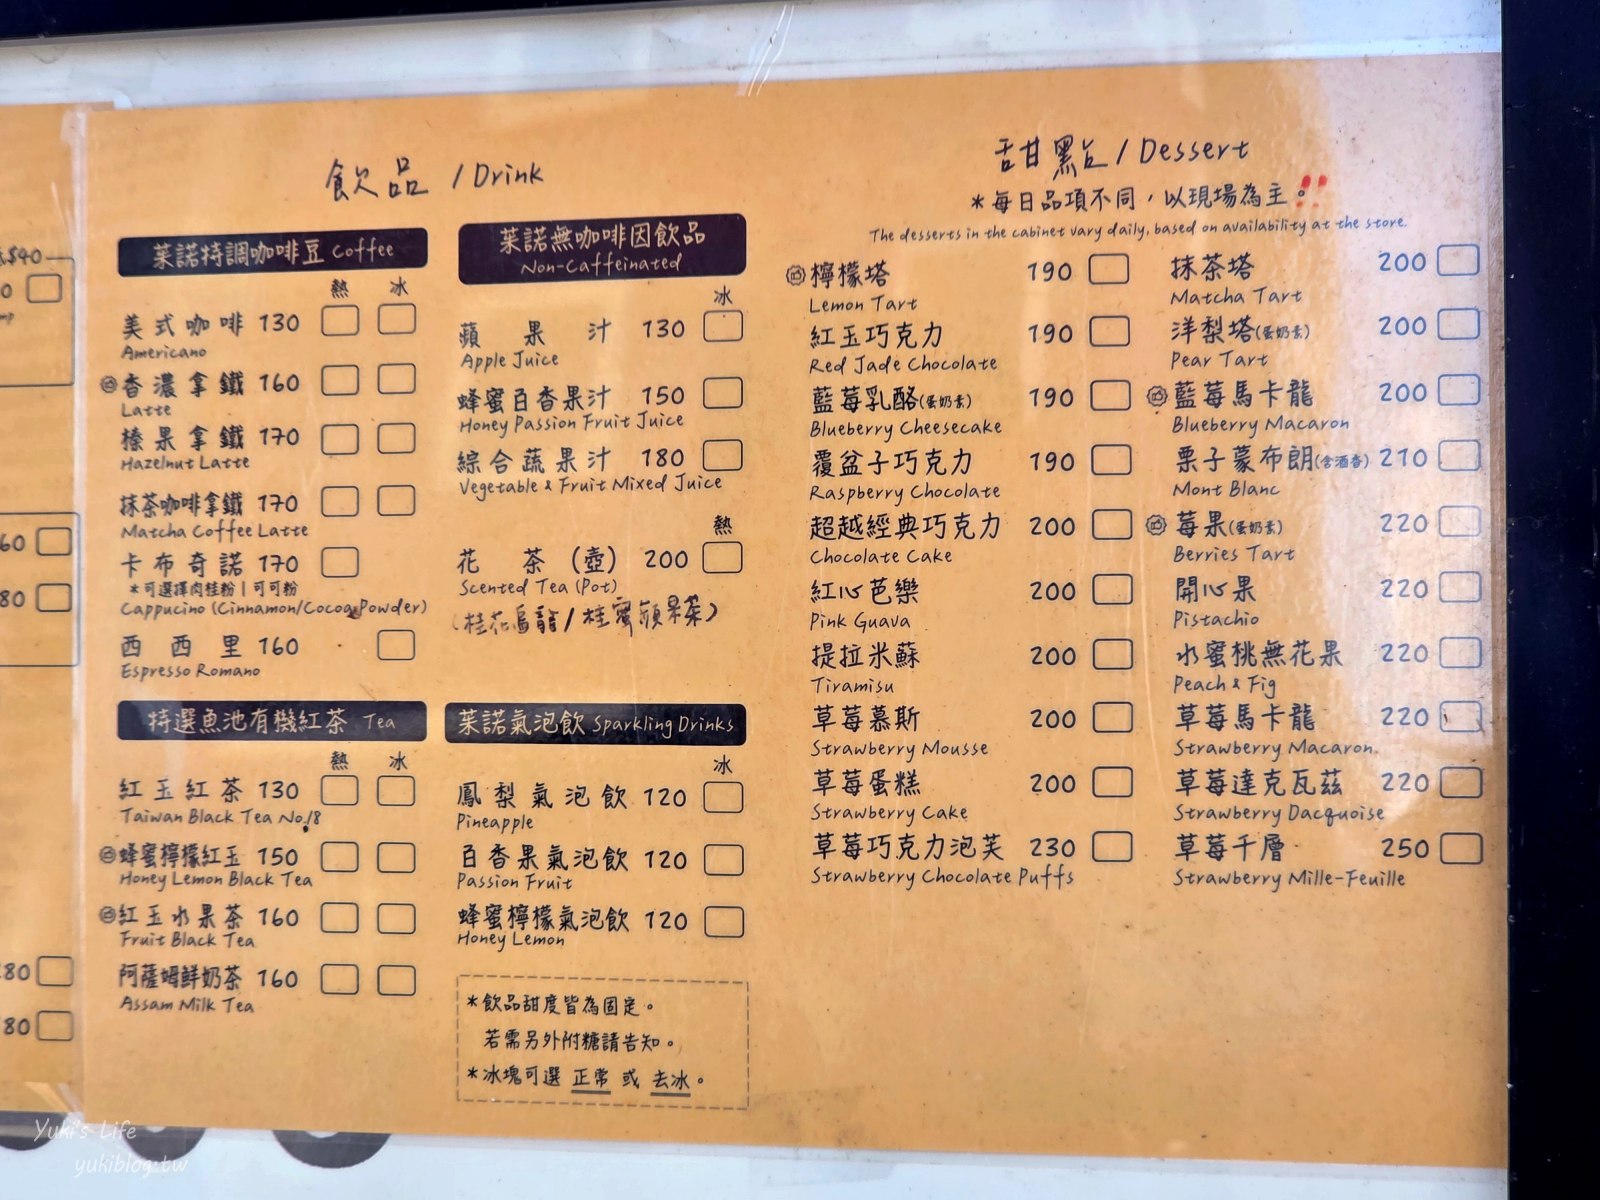 $40
0
mp
60
80
80
80
飲品 / Drink
茱諾特調咖啡豆 Coffee
熱 冰
美式咖啡 130
Americano
香濃拿鐵 160
Latte
榛果拿鐵 170
Hazelnut Latte
抹茶咖啡拿鐵 170
Matcha Coffee Latte
卡布奇諾 170
*可選擇肉桂粉|可可粉
Cappucino (Cinnamon/Cocoa Powder)
西西里 160
Espresso Romano
特選魚池有機紅茶 Tea
熱 冰
紅玉紅茶 130
Taiwan Black Tea No.18
蜂蜜檸檬紅玉 150
Honey Lemon Black Tea
紅玉水果茶 160
Fruit Black Tea
阿薩姆鮮奶茶 160
Assam Milk Tea
茱諾無咖啡因飲品
Non-Caffeinated
冰
蘋果汁 130
Apple Juice
蜂蜜百香果汁 150
Honey Passion Fruit Juice
綜合蔬果汁 180
Vegetable & Fruit Mixed Juice
熱
花茶(壺) 200
Scented Tea (Pot)
(桂花烏龍/桂蜜蘋果茶)
茱諾氣泡飲 Sparkling Drinks
冰
鳳梨氣泡飲 120
Pineapple
百香果氣泡飲 120
Passion Fruit
蜂蜜檸檬氣泡飲 120
Honey Lemon
*飲品甜度皆為固定。
若需另外附糖請告知。
*冰塊可選 正常 或 去冰。
甜點 / Dessert
*每日品項不同,以現場為主。!!
The desserts in the cabinet vary daily, based on availability at the store.
檸檬塔 190
Lemon Tart
紅玉巧克力 190
Red Jade Chocolate
藍莓乳酪(蛋奶素) 190
Blueberry Cheesecake
覆盆子巧克力 190
Raspberry Chocolate
超越經典巧克力 200
Chocolate Cake
紅心芭樂 200
Pink Guava
提拉米蘇 200
Tiramisu
草莓慕斯 200
Strawberry Mousse
草莓蛋糕 200
Strawberry Cake
草莓巧克力泡芙 230
Strawberry Chocolate Puffs
抹茶塔 200
Matcha Tart
洋梨塔(蛋奶素) 200
Pear Tart
藍莓馬卡龍 200
Blueberry Macaron
栗子蒙布朗(含酒香) 210
Mont Blanc
莓果(蛋奶素) 220
Berries Tart
開心果 220
Pistachio
水蜜桃無花果 220
Peach & Fig
草莓馬卡龍 220
Strawberry Macaron
草莓達克瓦茲 220
Strawberry Dacquoise
草莓千層 250
Strawberry Mille-Feuille
Yuki's Life
yukiblog.tw